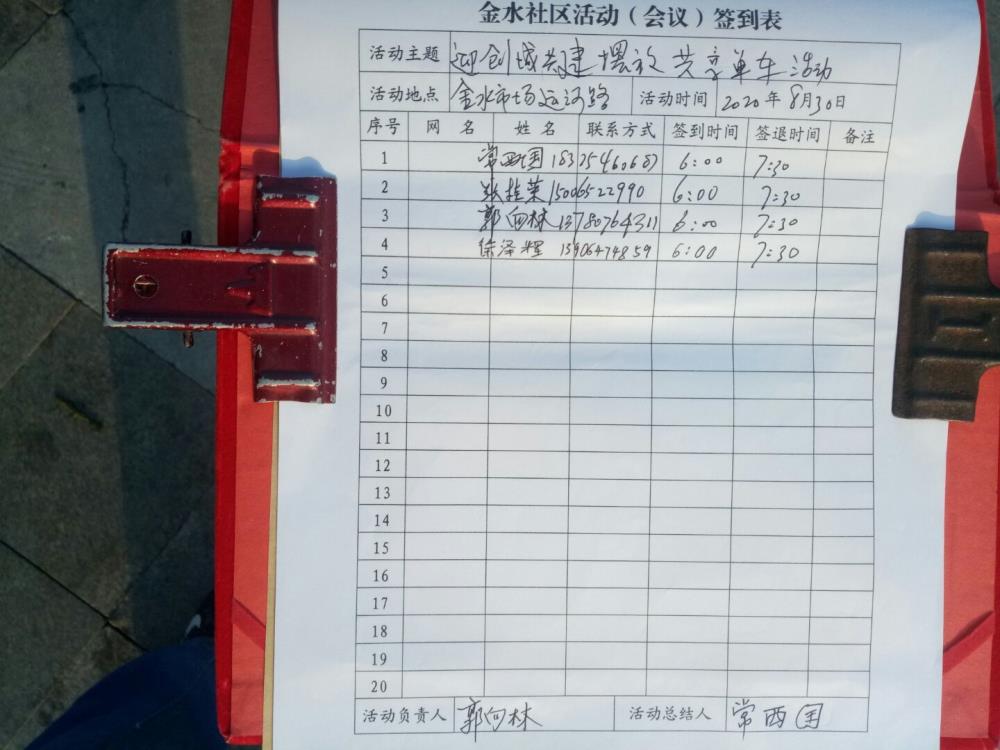 金水社区活动（会议）签到表
活动主题 迎创城共建 摆放共享单车活动
活动地点 金水市场运河路 活动时间 2020年8月30日
序号 网 名 姓 名 联系方式 签到时间 签退时间 备注
1 常西国 18325460687 6:00 7:30
2 张桂荣 15006522990 6:00 7:30
3 郭向林 13780764311 6:00 7:30
4 徐泽辉 15906474859 6:00 7:30
5
6
7
8
9
10
11
12
13
14
15
16
17
18
19
20
活动负责人 郭向林 活动总结人 常西国